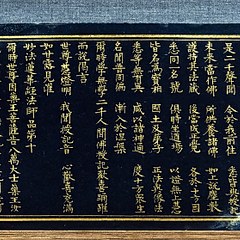 是二千聲聞 今於我前住 悉皆與授記
未來當作佛 所供養諸佛 如上說塵數
護持其法藏 後當成正覺 各於十方國
悉同一名號 俱時坐道場 以證無上慧
皆名為寶相 國土及弟子 正法與像法
悉等無有異 咸以諸神通 度十方眾生
名聞普周遍 漸入於涅槃
爾時學無學二千人聞佛授記歡喜踊躍
而說偈言
世尊慧燈明 我聞授記音 心歡喜充滿
如甘露見灌
妙法蓮華經法師品第十
爾時世尊因藥王菩薩告八萬大士藥王汝